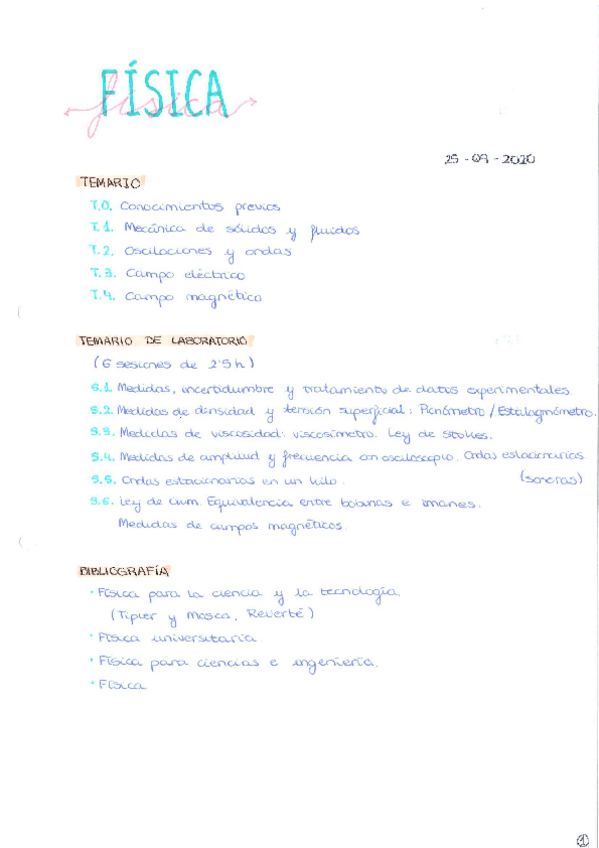 FÍSICA
física
25-09-2020
TEMARIO
T.0. Conocimientos previos
T.1. Mecánica de sólidos y fluidos
T.2. Oscilaciones y ondas
T.3. Campo eléctrico
T.4. Campo magnético
TEMARIO DE LABORATORIO
(6 sesiones de 2'5h)
S.1. Medidas, incertidumbre y tratamiento de datos experimentales.
S.2. Medidas de densidad y tensión superficial: Picnómetro/Estalagmómetro.
S.3. Medidas de viscosidad: viscosímetro. Ley de Stokes.
S.4. Medidas de amplitud y frecuencia con osciloscopio. Ondas estacionarias
(sonoras)
S.5. Ondas estacionarias en un hilo.
S.6. Ley de Ohm. Equivalencia entre bobinas e imanes.
Medidas de campos magnéticos.
BIBLIOGRAFÍA
· Física para la ciencia y la tecnología.
(Tipler y Mosca, Reverté)
· Física universitaria.
· Física para ciencias e ingeniería.
· Física
1